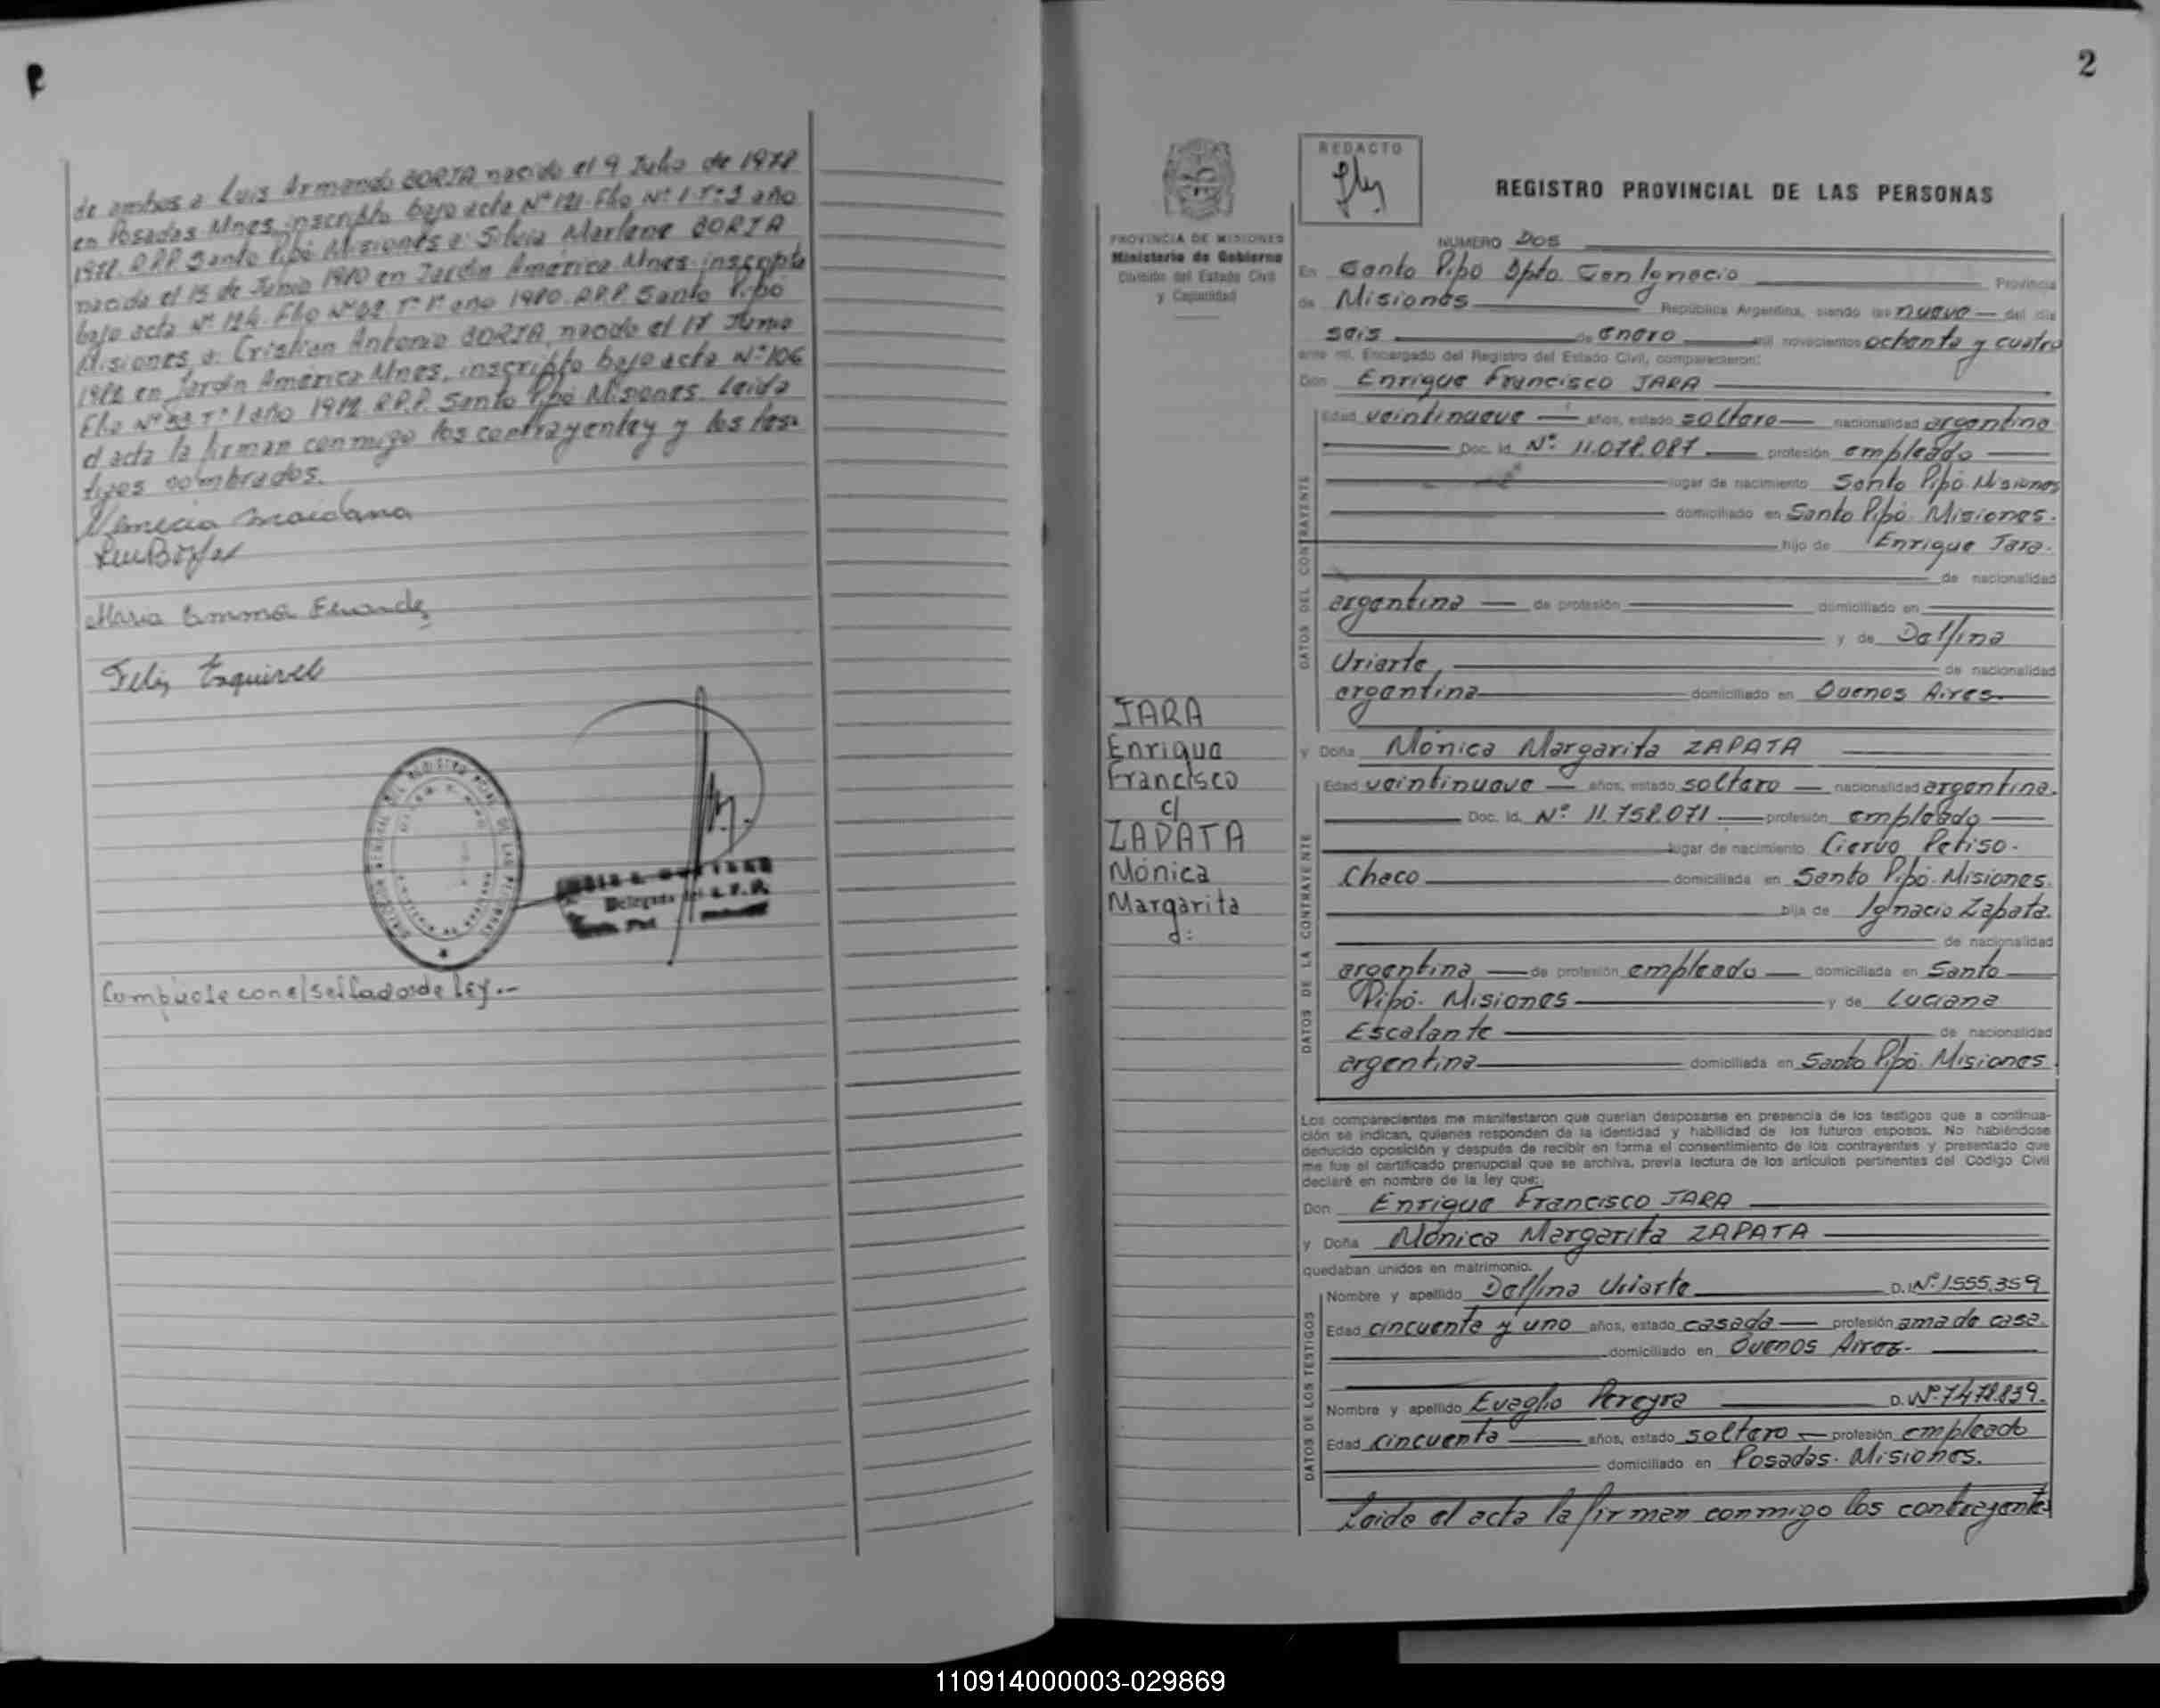 de ambos a Luis Armando BORJA nacido el 9 Julio de 1978
en Posadas Mnes. inscripto bajo acta Nº 121. Flio Nº 1. Tº 3 año
1978. R.P.P. Santo Pipó Misiones a: Silvia Marlene BORJA
nacida el 15 de Junio 1980 en Jardín América. Mnes. inscripta
bajo acta Nº 124. Flio Nº 62 Tº 1º año 1980. R.P.P. Santo Pipó
Misiones, a: Cristian Antonio BORJA, nacido el 17 Junio
1982 en Jardín América Mnes, inscripto bajo acta Nº 106
Flio Nº 53 Tº 1 año 1982 R.P.P. Santo Pipó Misiones. Leida
el acta la firman conmigo los contrayentes y los tes-
tigos nombrados.
Maidana
Maria Emma
Felix Esquivel
Delegada del R.P.P.
con el sellado de Ley.-
2
REDACTO
PROVINCIA DE MISIONES
Ministerio de Gobierno
División del Estado Civil
y Capacidad
REGISTRO PROVINCIAL DE LAS PERSONAS
NUMERO Dos
En Santo Pipó Dpto. San Ignacio Provincia
de Misiones República Argentina, siendo las nueve del día
seis de enero mil novecientos ochenta y cuatro
ante mí, Encargado del Registro del Estado Civil, comparecieron:
Don Enrique Francisco JARA
DATOS DEL CONTRAYENTE
Edad veintinueve años, estado soltero nacionalidad argentina
Doc. Id. Nº 11.078.087 profesión empleado
lugar de nacimiento Santo Pipó. Misiones
domiciliado en Santo Pipó. Misiones.
hijo de Enrique Jara.
de nacionalidad
argentina de profesión domiciliado en
y de Delfina
Uriarte de nacionalidad
argentina domiciliado en Buenos Aires.
JARA
Enrique
Francisco
c/
ZAPATA
Mónica
Margarita
y Doña Mónica Margarita ZAPATA
DATOS DE LA CONTRAYENTE
Edad veintinueve años, estado soltera nacionalidad argentina.
Doc. Id. Nº 11.758.071 profesión empleada
lugar de nacimiento Ciervo Petiso.
Chaco domiciliada en Santo Pipó. Misiones.
hija de Ignacio Zapata.
de nacionalidad
argentina de profesión empleado domiciliado en Santo
Pipó. Misiones y de Luciana
Escalante de nacionalidad
argentina domiciliada en Santo Pipó. Misiones.
Los comparecientes me manifestaron que querían desposarse en presencia de los testigos que a continua-
ción se indican, quienes responden de la identidad y habilidad de los futuros esposos. No habiéndose
deducido oposición y después de recibir en forma el consentimiento de los contrayentes y presentado que
me fue el certificado prenupcial que se archiva, previa lectura de los artículos pertinentes del Código Civil
declaré en nombre de la ley que:
Don Enrique Francisco JARA
y Doña Mónica Margarita ZAPATA
quedaban unidos en matrimonio.
DATOS DE LOS TESTIGOS
Nombre y apellido Delfina Uriarte D. Nº 1.555.359
Edad cincuenta y uno años, estado casada profesión ama de casa.
domiciliado en Buenos Aires.
Nombre y apellido Evaglio Pereyra D. Nº 7.478.839.
Edad cincuenta años, estado soltero profesión empleado
domiciliado en Posadas. Misiones.
Leida el acta la firman conmigo los contrayentes
110914000003-029869